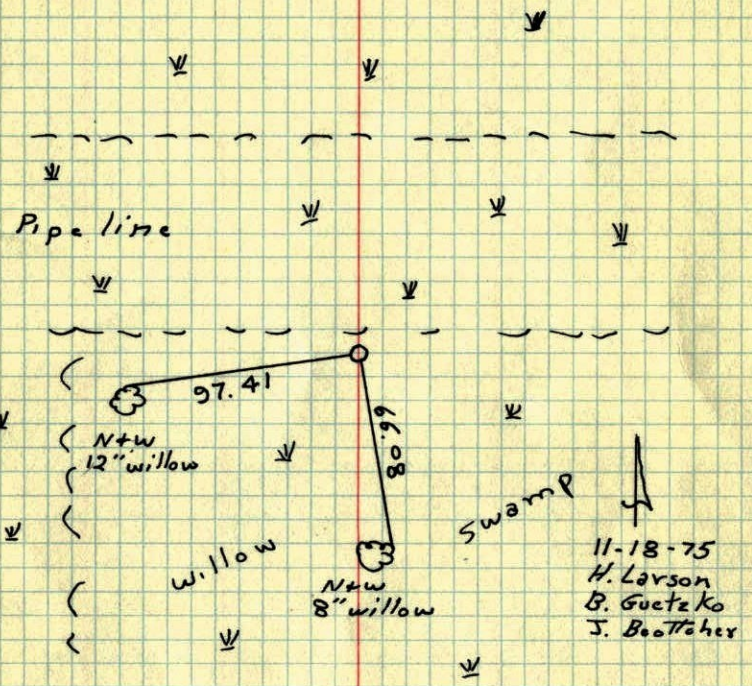 Pipe line
97.41
66.08
N+W
12" willow
willow
Swamp
N+W
8" willow
11-18-75
H. Larson
B. Guetzko
J. Boettcher